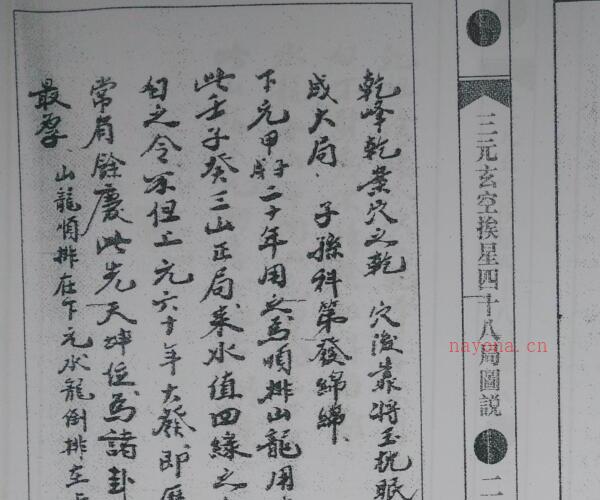 三元玄空挨星四十八局圖説
二
乾峰乾業穴之乾 穴後靠將玉枕眠
成大局 子孫科第發綿綿
下元甲子二十年用之為順排山龍用
此壬子癸三山正局來水值四綠之
旬之令不但上元六十年大發即歷
常有餘慶此先天坤位為諸卦
最厚 山龍順排在下元水龍倒排在上
nayona.cn